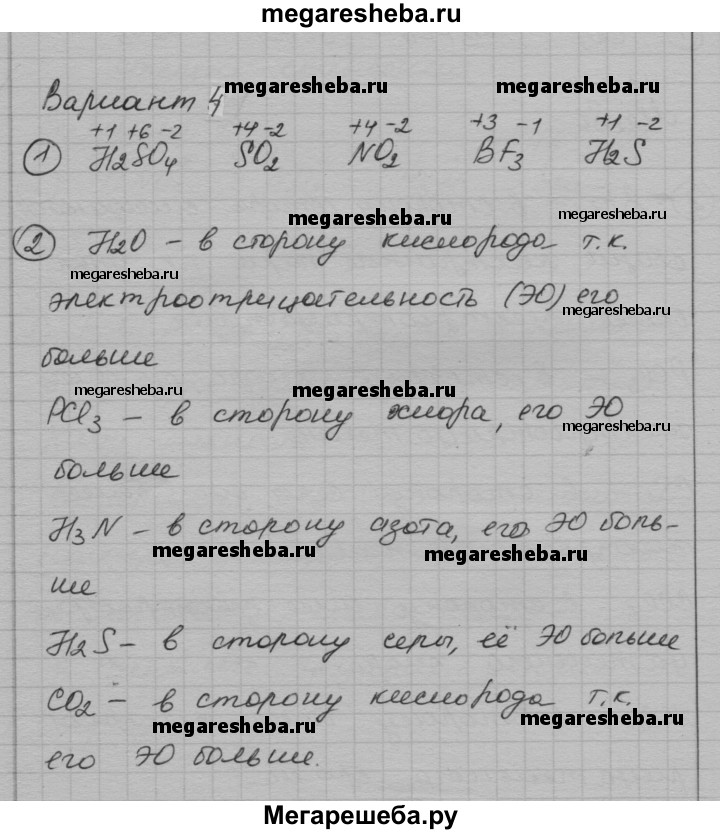 megaresheba.ru
Вариант 4
megaresheba.ru megaresheba.ru
+1 +6 -2 +4 -2 +4 -2 +3 -1 +1 -2
1 H2SO4 SO2 NO2 BF3 H2S
megaresheba.ru megaresheba.ru
2 H2O - в сторону кислорода т.к.
megaresheba.ru
электроотрицательность (ЭО) его
megaresheba.ru
больше
megaresheba.ru megaresheba.ru
PCl3 - в сторону хлора, его ЭО
megaresheba.ru
больше
H3N - в сторону азота, его ЭО боль-
megaresheba.ru megaresheba.ru
ше
H2S - в сторону серы, её ЭО больше
CO2 - в сторону кислорода т.к.
megaresheba.ru megaresheba.ru
его ЭО больше.
Мегарешеба.ру